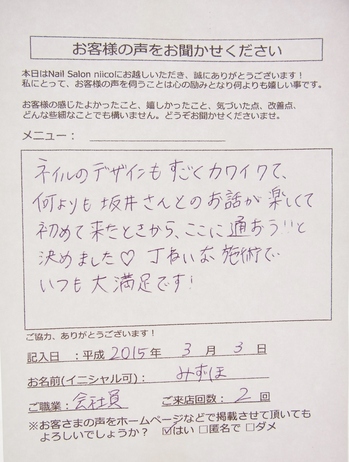 お客様の声をお聞かせください
本日はNail Salon niicoにお越しいただき、誠にありがとうございます！
私にとって、お客様の声を伺うことは心の励みとなり何よりも嬉しい事です。
お客様の感じたよかったこと、嬉しかったこと、気づいた点、改善点、
どんな些細なことでも構いません。どうぞお聞かせ下さいませ。
メニュー：
ネイルのデザインもすごくカワイクて、
何よりも坂井さんとのお話が楽しくて
初めて来たときから、ここに通おう!!と
決めました♡ 丁ねいな施術で
いつも大満足です!
ご協力、ありがとうございます！
記入日 ：平成 2015年 3月 3日
お名前(イニシャル可)： みずほ
ご職業： 会社員 ご来店回数： 2 回
※お客さまの声をホームページなどで掲載させて頂いても
よろしいでしょうか？ ☑はい □匿名で □ダメ